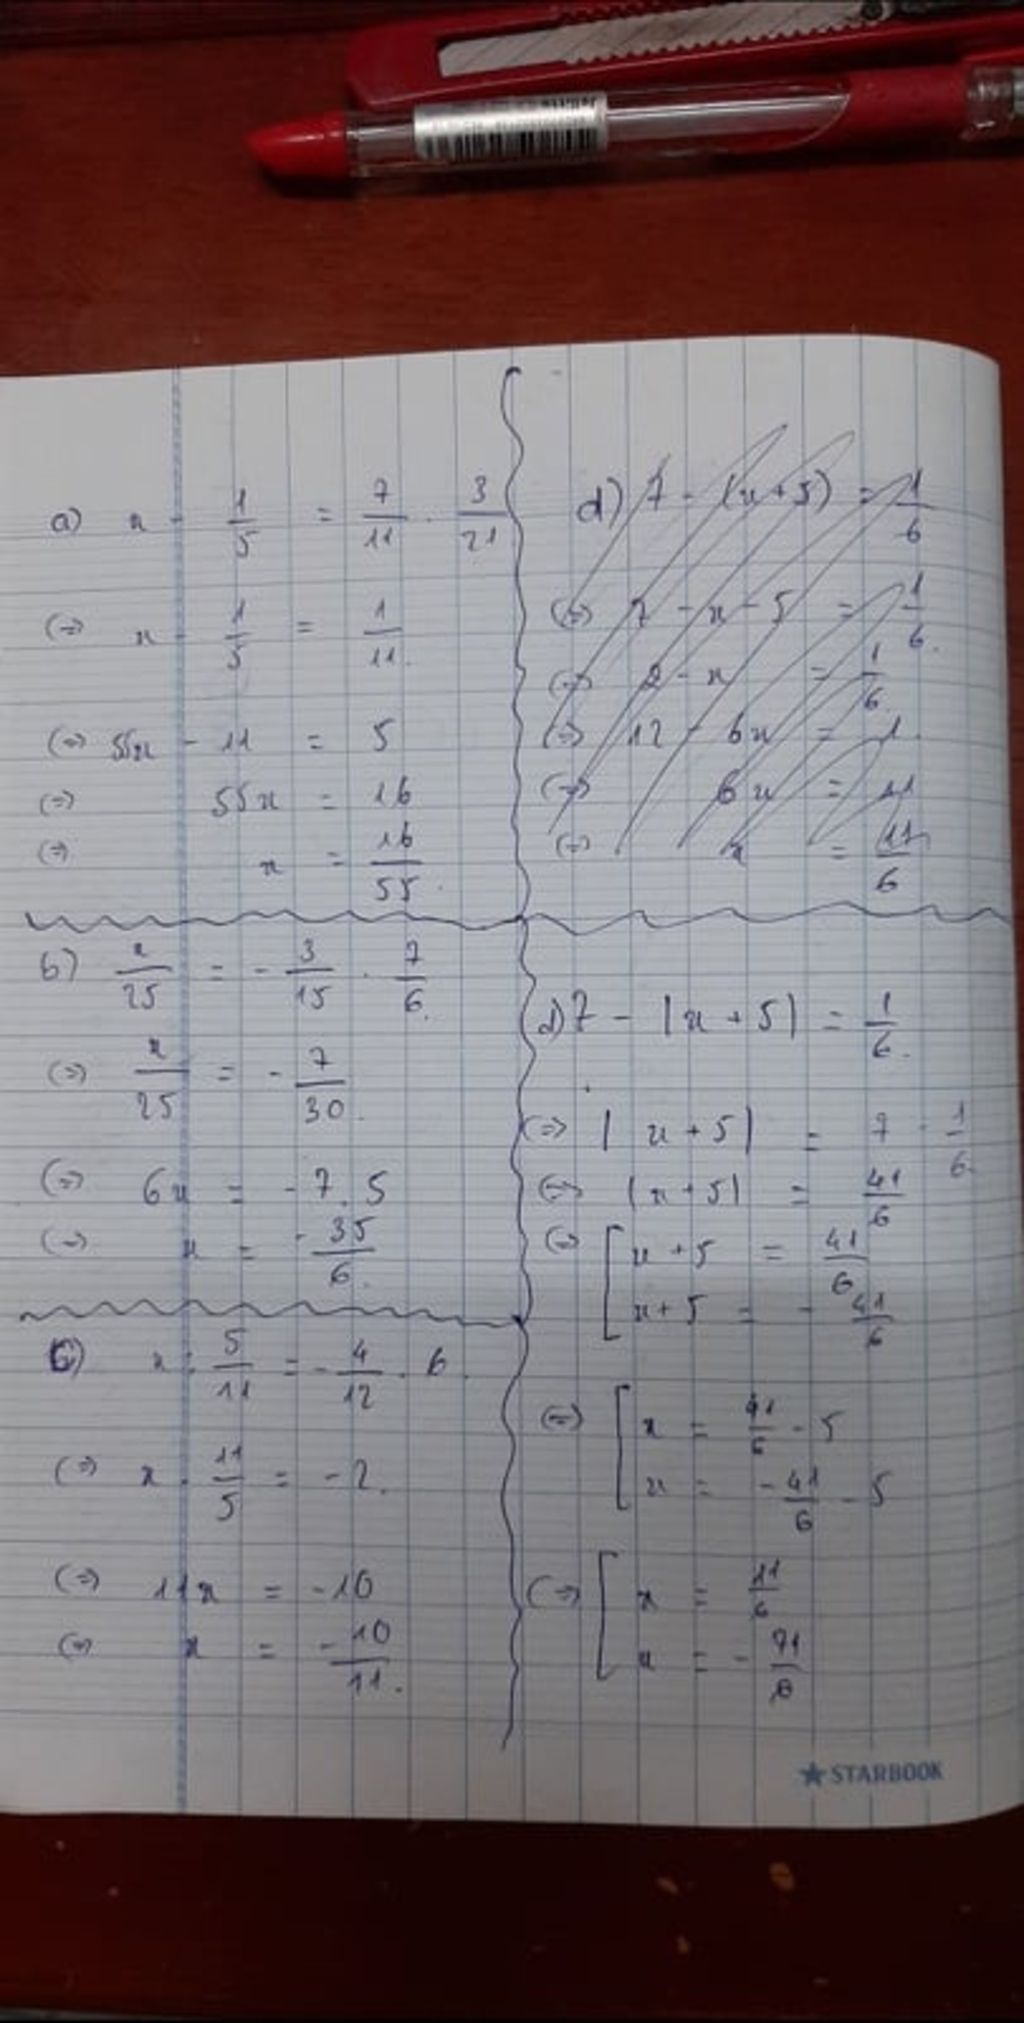 a) x - 1/5 = 7/11 . 3/21
(=) x - 1/5 = 1/11.
(=) 55x - 11 = 5
(=) 55x = 16
(=) x = 16/55.
b) x/25 = - 3/15 . 7/6.
(=) x/25 = - 7/30.
(=) 6x = - 7.5
(=) x = - 35/6.
c) x : 5/11 = - 4/12 . 6.
(=) x . 11/5 = -2.
(=) 11x = -10
(=) x = - 10/11.
d) 7 - (x + 5) = 1/6
(=) 7 - x - 5 = 1/6.
(=) 2 - x = 1/6
(=) 12 - 6x = 1
(=) 6x = 11
(=) x = 11/6
d) 7 - |x + 5| = 1/6.
(=) |x + 5| = 7 - 1/6
(=) |x + 5| = 41/6
(=) [ x + 5 = 41/6
x + 5 = - 41/6
(=) [ x = 41/6 - 5
x = - 41/6 - 5
(=) [ x = 11/6
x = - 71/6
STARBOOK